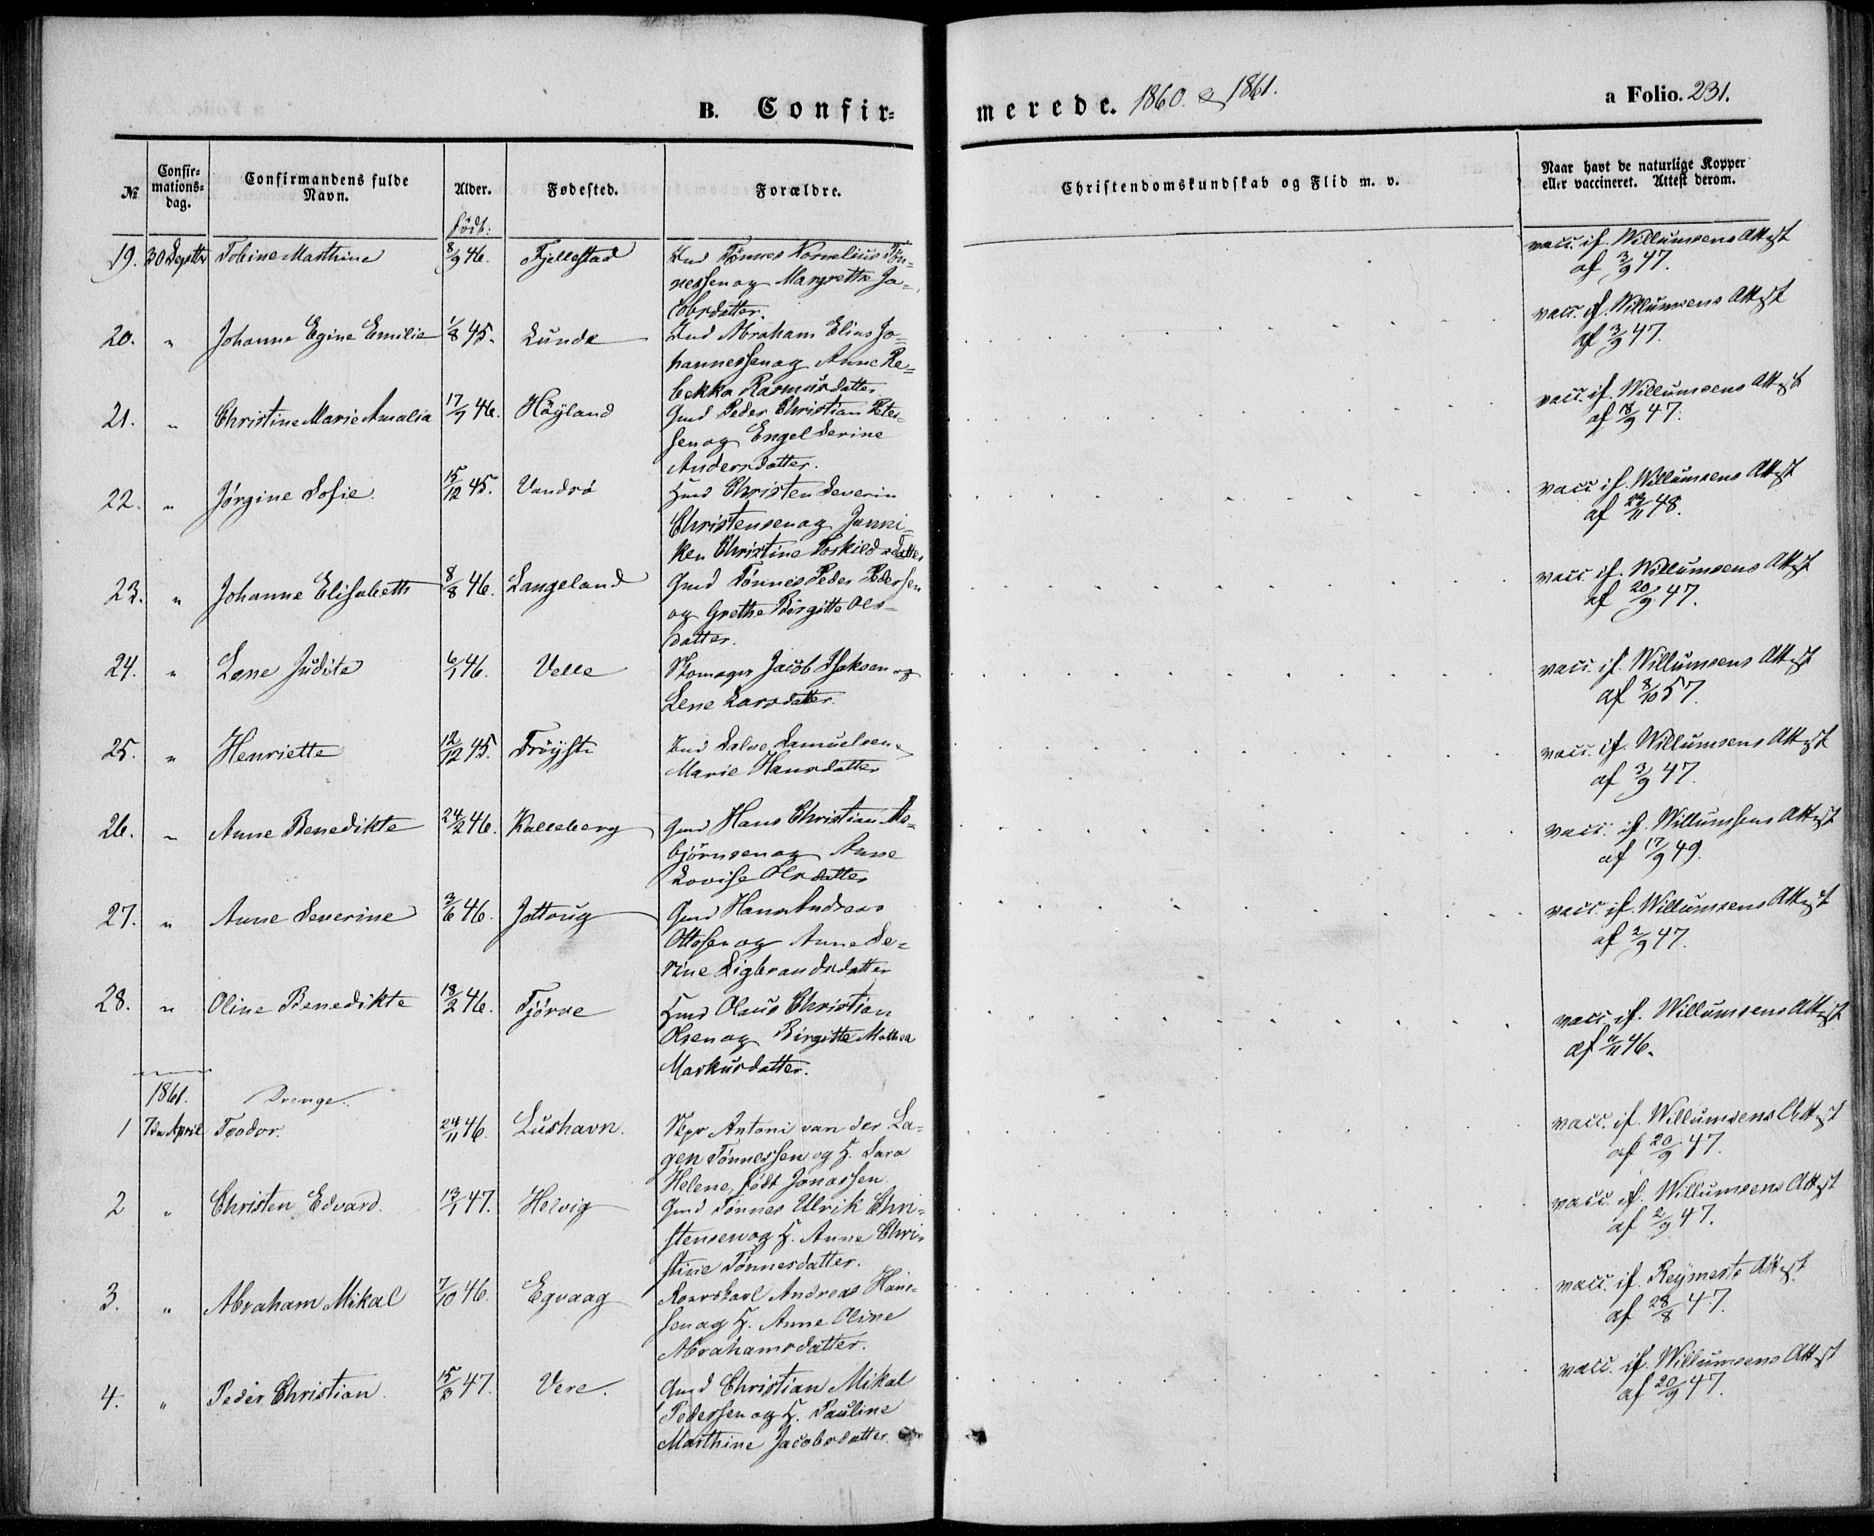 B. Confir- merede. 1860. & 1861.
a Folio. 231.
№
Confir-
mations-
dag.
Confirmandens fulde
Navn.
Alder.
Fødested.
Forældre.
Christendomskundskab og Flid m. v.
Naar havt de naturlige Kopper
eller vaccineret. Attest derom.
født:
19. 30 Septbr Tobine Marthine 8/9 46. Fjellestad Tønnes Kornelius Tøn-
nessen og Margrethe Ja-
cobsdatter.
vacc. if. Willumsens Attest
af 3/9 47.
20. " Johanne Egine Emilie 1/8 45. Lunde Abraham Elias Jo-
hannessen og Anne Re-
bekka Rasmusdatter
vacc. if. Willumsens Attest
af 3/9 47.
21. " Christine Marie Amalia 17/7 46. Høyland Gmd Peder Christian Peter-
sen og Engel Serine
Andersdatter.
vacc. if. Willumsens Attest
af 18/9 47.
22. " Jørgine Sofie 15/12 45. Vandsø Hmd Christen Severin
Christensen og Janni-
ken Christine Toskildsdatter
vacc. if. Willumsens Attest
af 11 48.
23. " Johanne Elisabeth 8/8 46. Langeland Gmd Tønnes Peder Pedersen
og Grethe Birgitte Ols-
datter.
vacc. if. Willumsens Attest
af 20/9 47.
24. " Lene Judite 6/1 46. Velle Skomager Jacob Isaksen og
Lene Larsdatter.
vacc. if. Willumsens Attest
af 8/10 57.
25. " Henriette 12/12 45. Trøyste Salve Samuelsen
Marie Hansdatter
vacc. if. Willumsens Attest
af 3/9 47.
26. " Anne Benedikte 24/2 46. Kalleberg Gmd Hans Christian As-
bjørnsen og Anne
Lovise Olsdatter
vacc. if. Willumsens Attest
af 17/9 49.
27. " Anne Severine 3/6 46. Jottoug Gmd Hans Andreas
Ottosen og Anne Se-
rine Sigbrandsdatter
vacc. if. Willumsens Attest
af 2/9 47.
28. " Oline Benedikte 18/2 46. Tjørve Hmd Olaus Christian
Olsen og Birgitte Mathea
Markusdatter.
vacc. if. Willumsens Attest
af 11 46.
1861. Drenge.
1 7de April Teodor. 24/11 46. Lushavn. Skpr Antoni van der La-
gen Tønnessen og H. Sara
Helene, født Jonassen
vacc. if. Willumsens Attest
af 20/9 47.
2 " Christen Edvard. 13/1 47. Helvig Gmd Tønnes Ulrik Chri-
stensen og H. Anne Chri-
stine Tønnesdatter.
vacc. if. Willumsens Attest
af 2/9 47.
3. " Abraham Mikal 7/10 46. Egvaag Andreas Han-
sen og H. Anne Oline
Abrahamsdatter.
vacc. if. Reymerts Attest
af 28/8 47.
4. " Peder Christian. 15/3 47. Vere. Gmd Christian Mikal
Pedersen og H. Pauline
Marthine Jacobsdatter
vacc. if. Willumsens Attest
af 20/9 47.